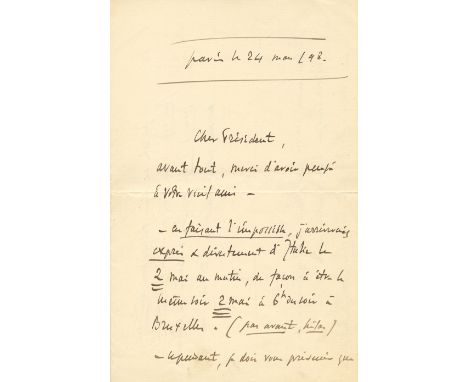 paris le 24 mars 98.
Cher Président,
avant tout, merci d'avoir pensé
à votre vieil ami –
– en faisant l'impossible, j'arriverais
exprès & directement d'Italie le
2 mai au matin, de façon à être le
même soir 2 mai à 6h du soir à
Bruxelles. (pas avant, hélas)
– cependant, je dois vous prévenir que